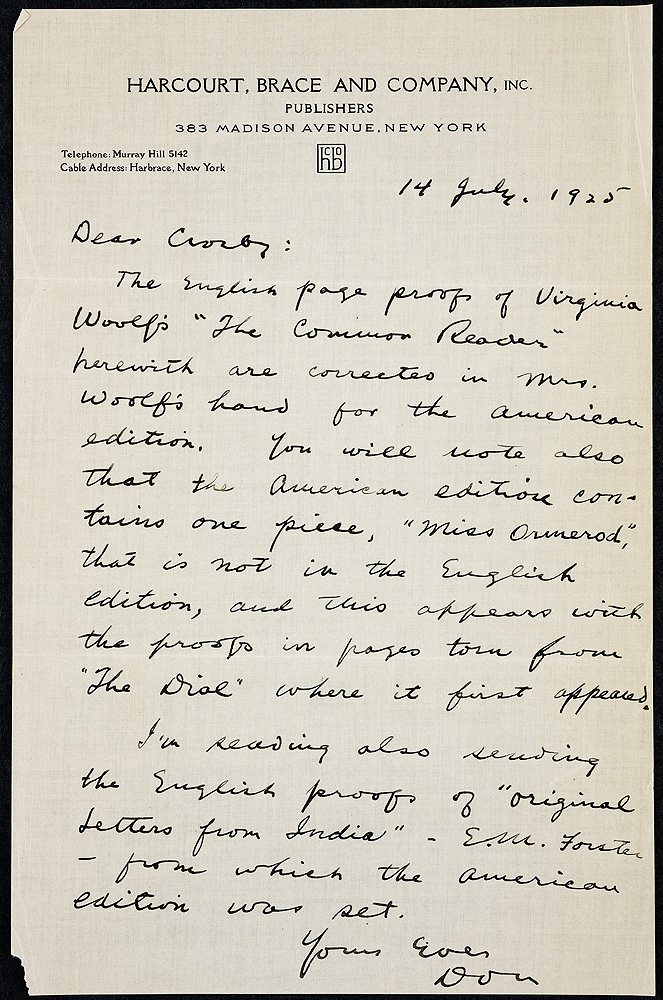 HARCOURT, BRACE AND COMPANY, INC.
PUBLISHERS
383 MADISON AVENUE, NEW YORK
Telephone: Murray Hill 5142
Cable Address: Harbrace, New York
14 July. 1925
Dear Crosby:
The English page proofs of Virginia
Woolf's "The Common Reader"
herewith are corrected in Mrs.
Woolf's hand for the American
edition. You will note also
that the American edition con-
tains one piece, "Miss Ormerod",
that is not in the English
edition, and this appears with
the proofs in pages torn from
"The Dial" where it first appeared.
I'm sending also sending
the English proofs of "Original
Letters from India" - E.M. Forster
- from which the American
edition was set.
Yours ever
Don